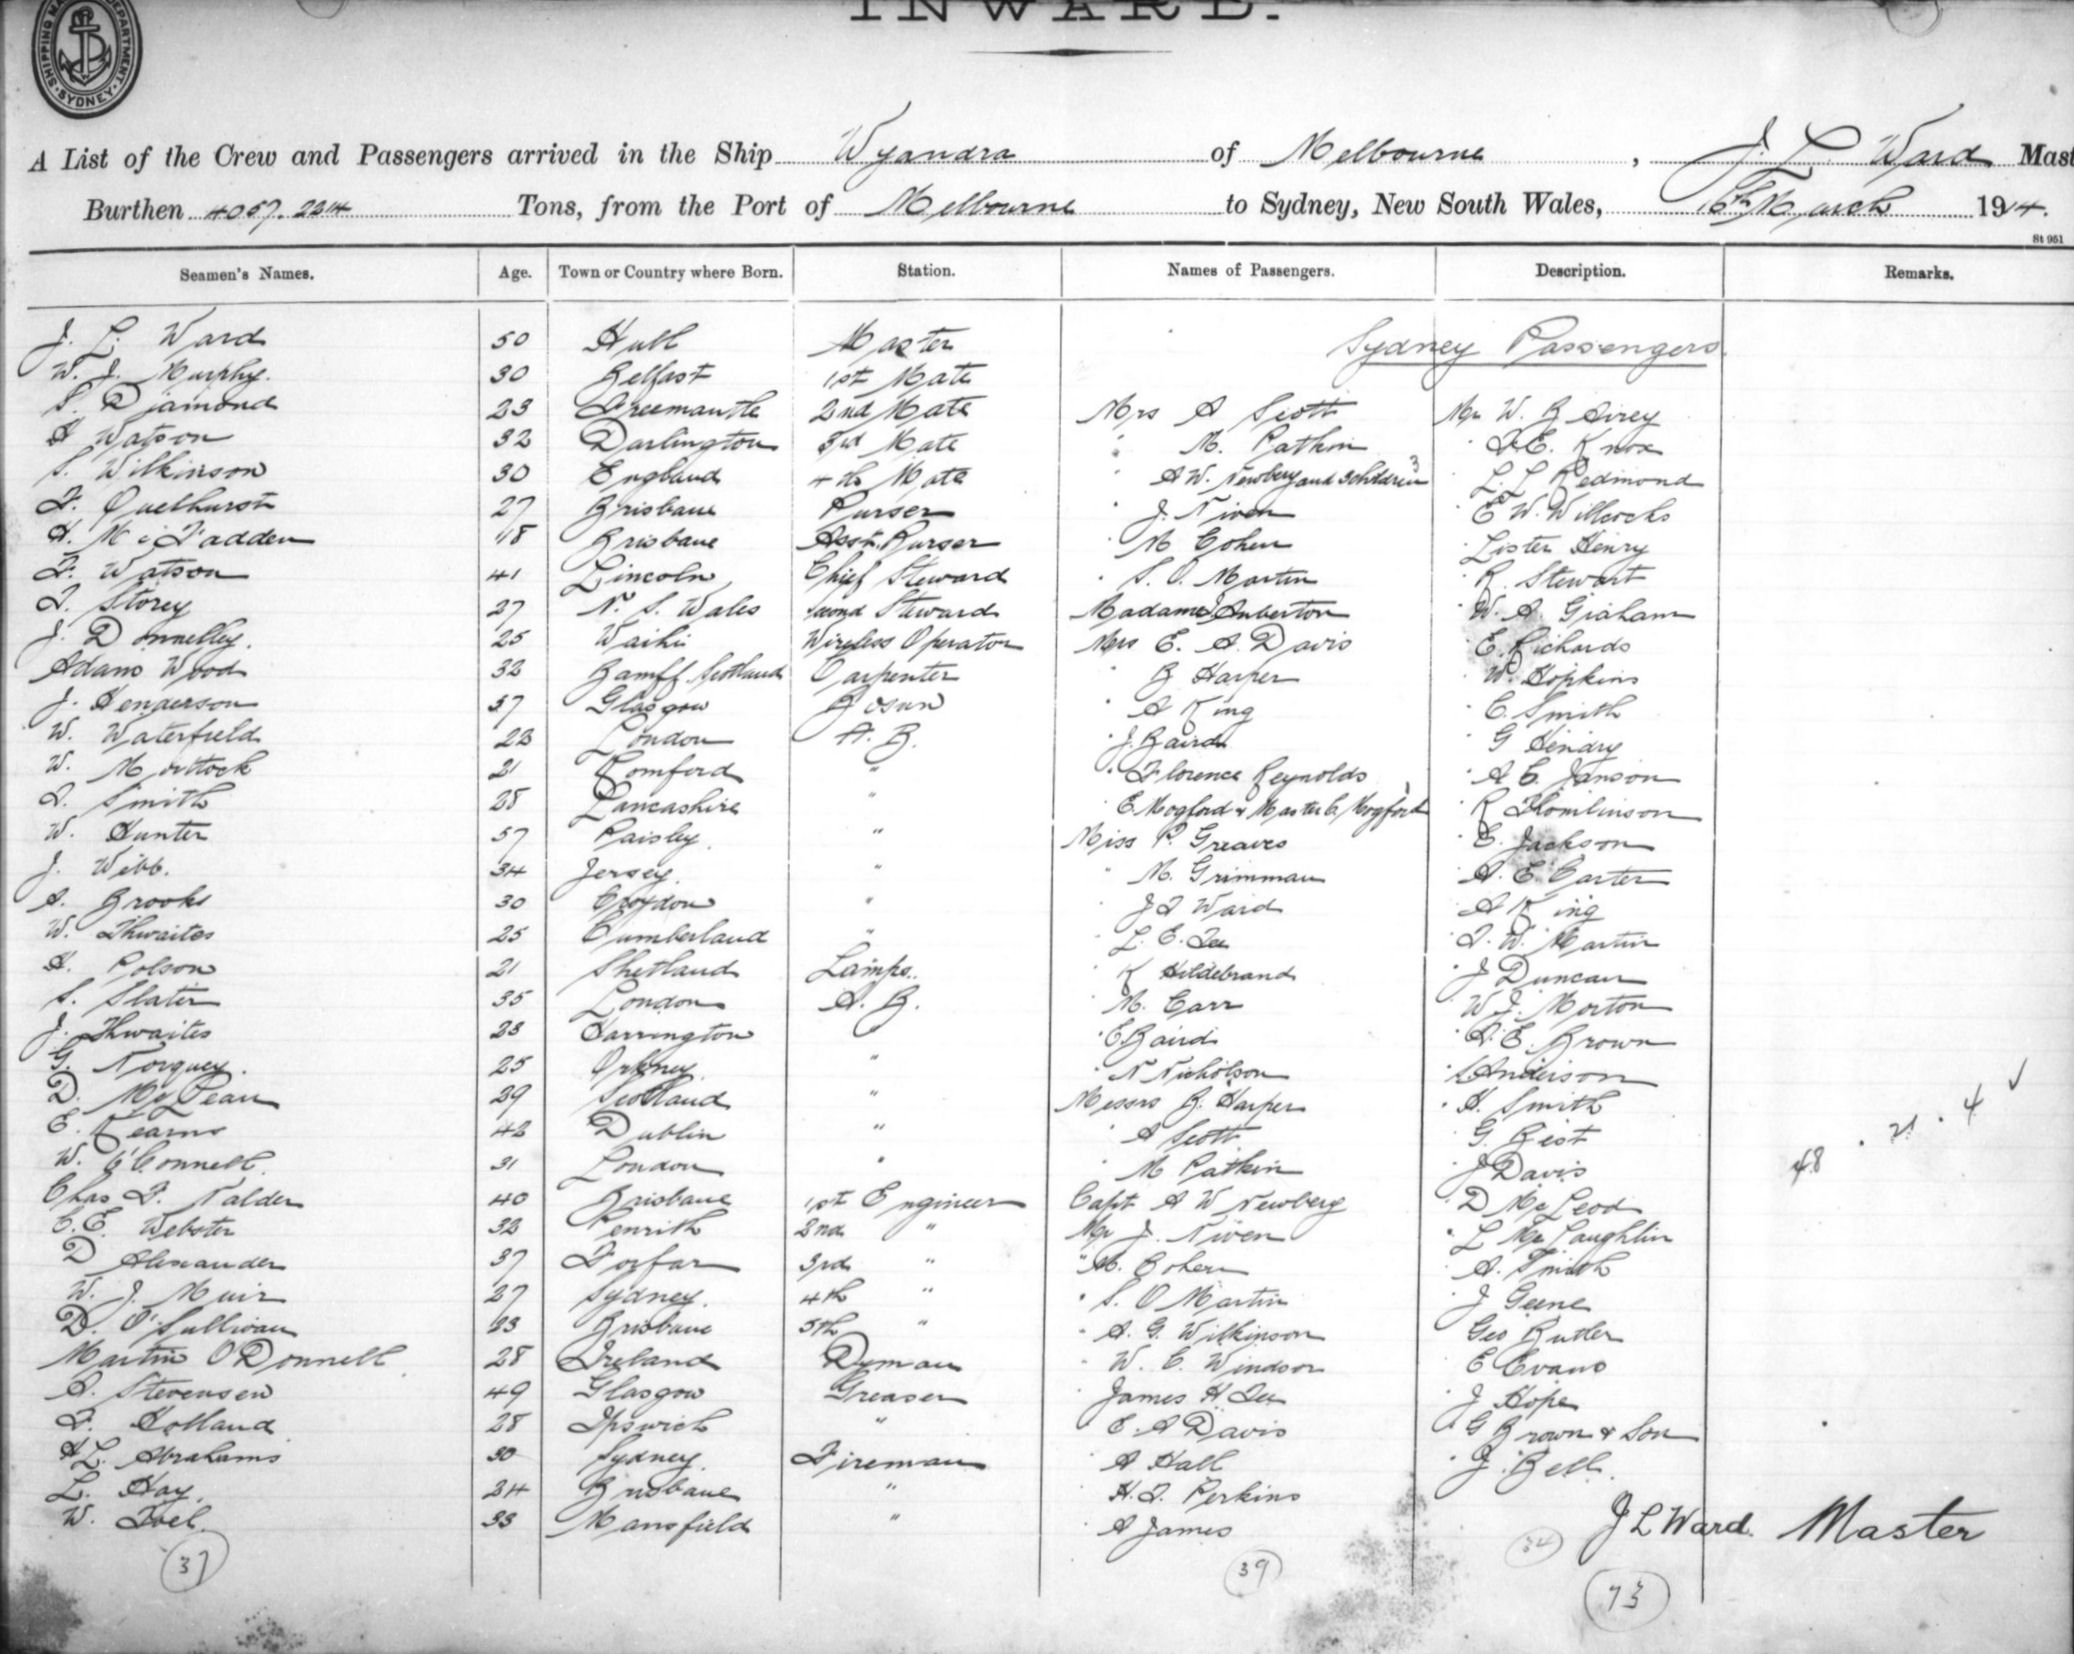 INWARD.
SHIPPING MA DEPARTMENT SYDNEY
A List of the Crew and Passengers arrived in the Ship Wyandra of Melbourne, J. L. Ward Mast
Burthen 4057.2214 Tons, from the Port of Melbourne to Sydney, New South Wales, 16th March 1914.
St 951
Seamen's Names. Age. Town or Country where Born. Station. Names of Passengers. Description. Remarks.
J. L. Ward 50 Hull Master Sydney Passengers
W. J. Murphy. 30 Belfast 1st Mate
S. Diamond 23 Freemantle 2nd Mate Mrs A Scott Mr W. B Airey
H Watson 32 Darlington 3rd Mate " M. Patkin " F.E. Knox
S. Wilkinson 30 England 4th Mate " A W. Newbery and 3 children 3 " L. L Redmond
F. Quelhurst 27 Brisbane Purser " J. Niven " E W. Willcocks
H. McFadden 18 Brisbane Asst. Purser " M Cohen " Lister Henry
F. Watson 41 Lincoln Chief Steward " S. O. Martin " R. Stewart
T. Storey 27 N. S. Wales Second Steward Madame Amberton " W. A. Graham
J. Donnelley. 25 Waihi Wireless Operator Mrs E. A. Davis " E. Richards
Adam Wood 32 Banff. Scotland Carpenter " B Harper " W. Hopkins
J. Henderson 37 Glasgow Bosun " A King " C. Smith
W. Waterfield 22 London A. B. " J. Baird " G Hendry
W. Mortlock 21 Romford " " Florence Reynolds " A C. Janson
T. Smith 28 Lancashire " " E. Mogford & Master C. Mogford " R Thomlinson
W. Hunter 57 Paisley. " Miss P. Greaves " E. Jackson
J. Webb. 34 Jersey. " " M. Grimman " A. E. Carter
A. Brooks 30 Croydon " " J T Ward " A King
W. Thwaites 25 Cumberland " " L. E. Lee " T. W. Martin
H. Polson 21 Shetland Lamps. " K Hildebrand " J Duncan
S. Slater 35 London A. B. " M. Carr " W J. Morton
J. Thwaites 23 Harrington " E. Baird " A. E. Brown
G. Norquey. 25 Orkney. " " N Nicholson " S Anderson
D. McLean 29 Scotland " Messrs B. Harper " H. Smith
E. Kearns 42 Dublin " " A Scott " G. Rist
W. O'Connell. 31 London " " M Patkin " J Davis 48 . 21 . 4 ✓
Chas F. Nalder 40 Brisbane 1st Engineer Capt A W Newberg " D McLeod
C. E. Webster 32 Penrith 2nd " Mr J. Niven " L McLaughlin
D Alexander 37 Forfar 3rd " " M. Cohen " A. Smith
W. J. Muir 27 Sydney. 4th " " S. O Martin " J Geene
D. O'Sullivan 23 Brisbane 5th " " A. G. Wilkinson " Geo Butler
Martin O'Donnell 28 Ireland Dyman " W. C. Windsor " E Evans
A. Stevensen 49 Glasgow Greaser " James H Lee " J Hope
F. Holland 28 Ipswich " " E. A Davis " G Brown & Son
H L. Abrahams 30 Sydney. Fireman " A Hall " J. Bell.
L. Hay. 24 Brisbane " " H. T. Perkins
W. Toel. 33 Mansfield " " A James J L Ward. Master
37 39 34
73